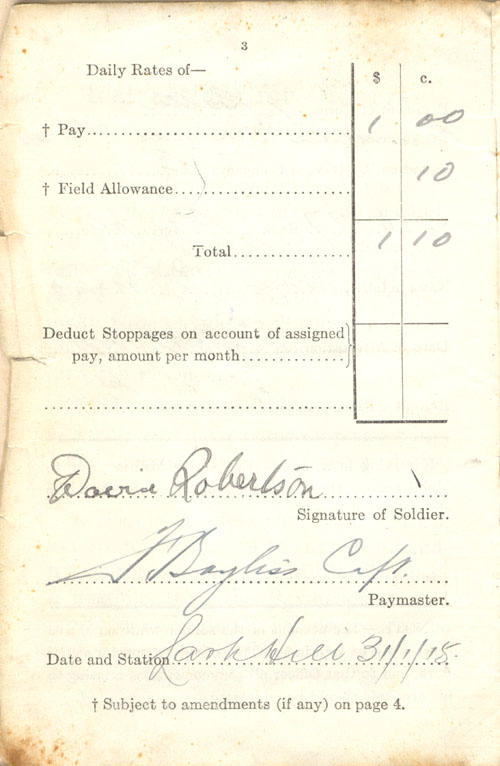 3
Daily Rates of—
$ c.
† Pay 1 00
† Field Allowance 10
Total 1 10
Deduct Stoppages on account of assigned
pay, amount per month
David Robertson
Signature of Soldier.
F Bayliss Capt.
Paymaster.
Date and Station Lark Hill 31/1/15.
† Subject to amendments (if any) on page 4.